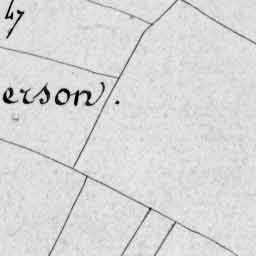 47
erson.